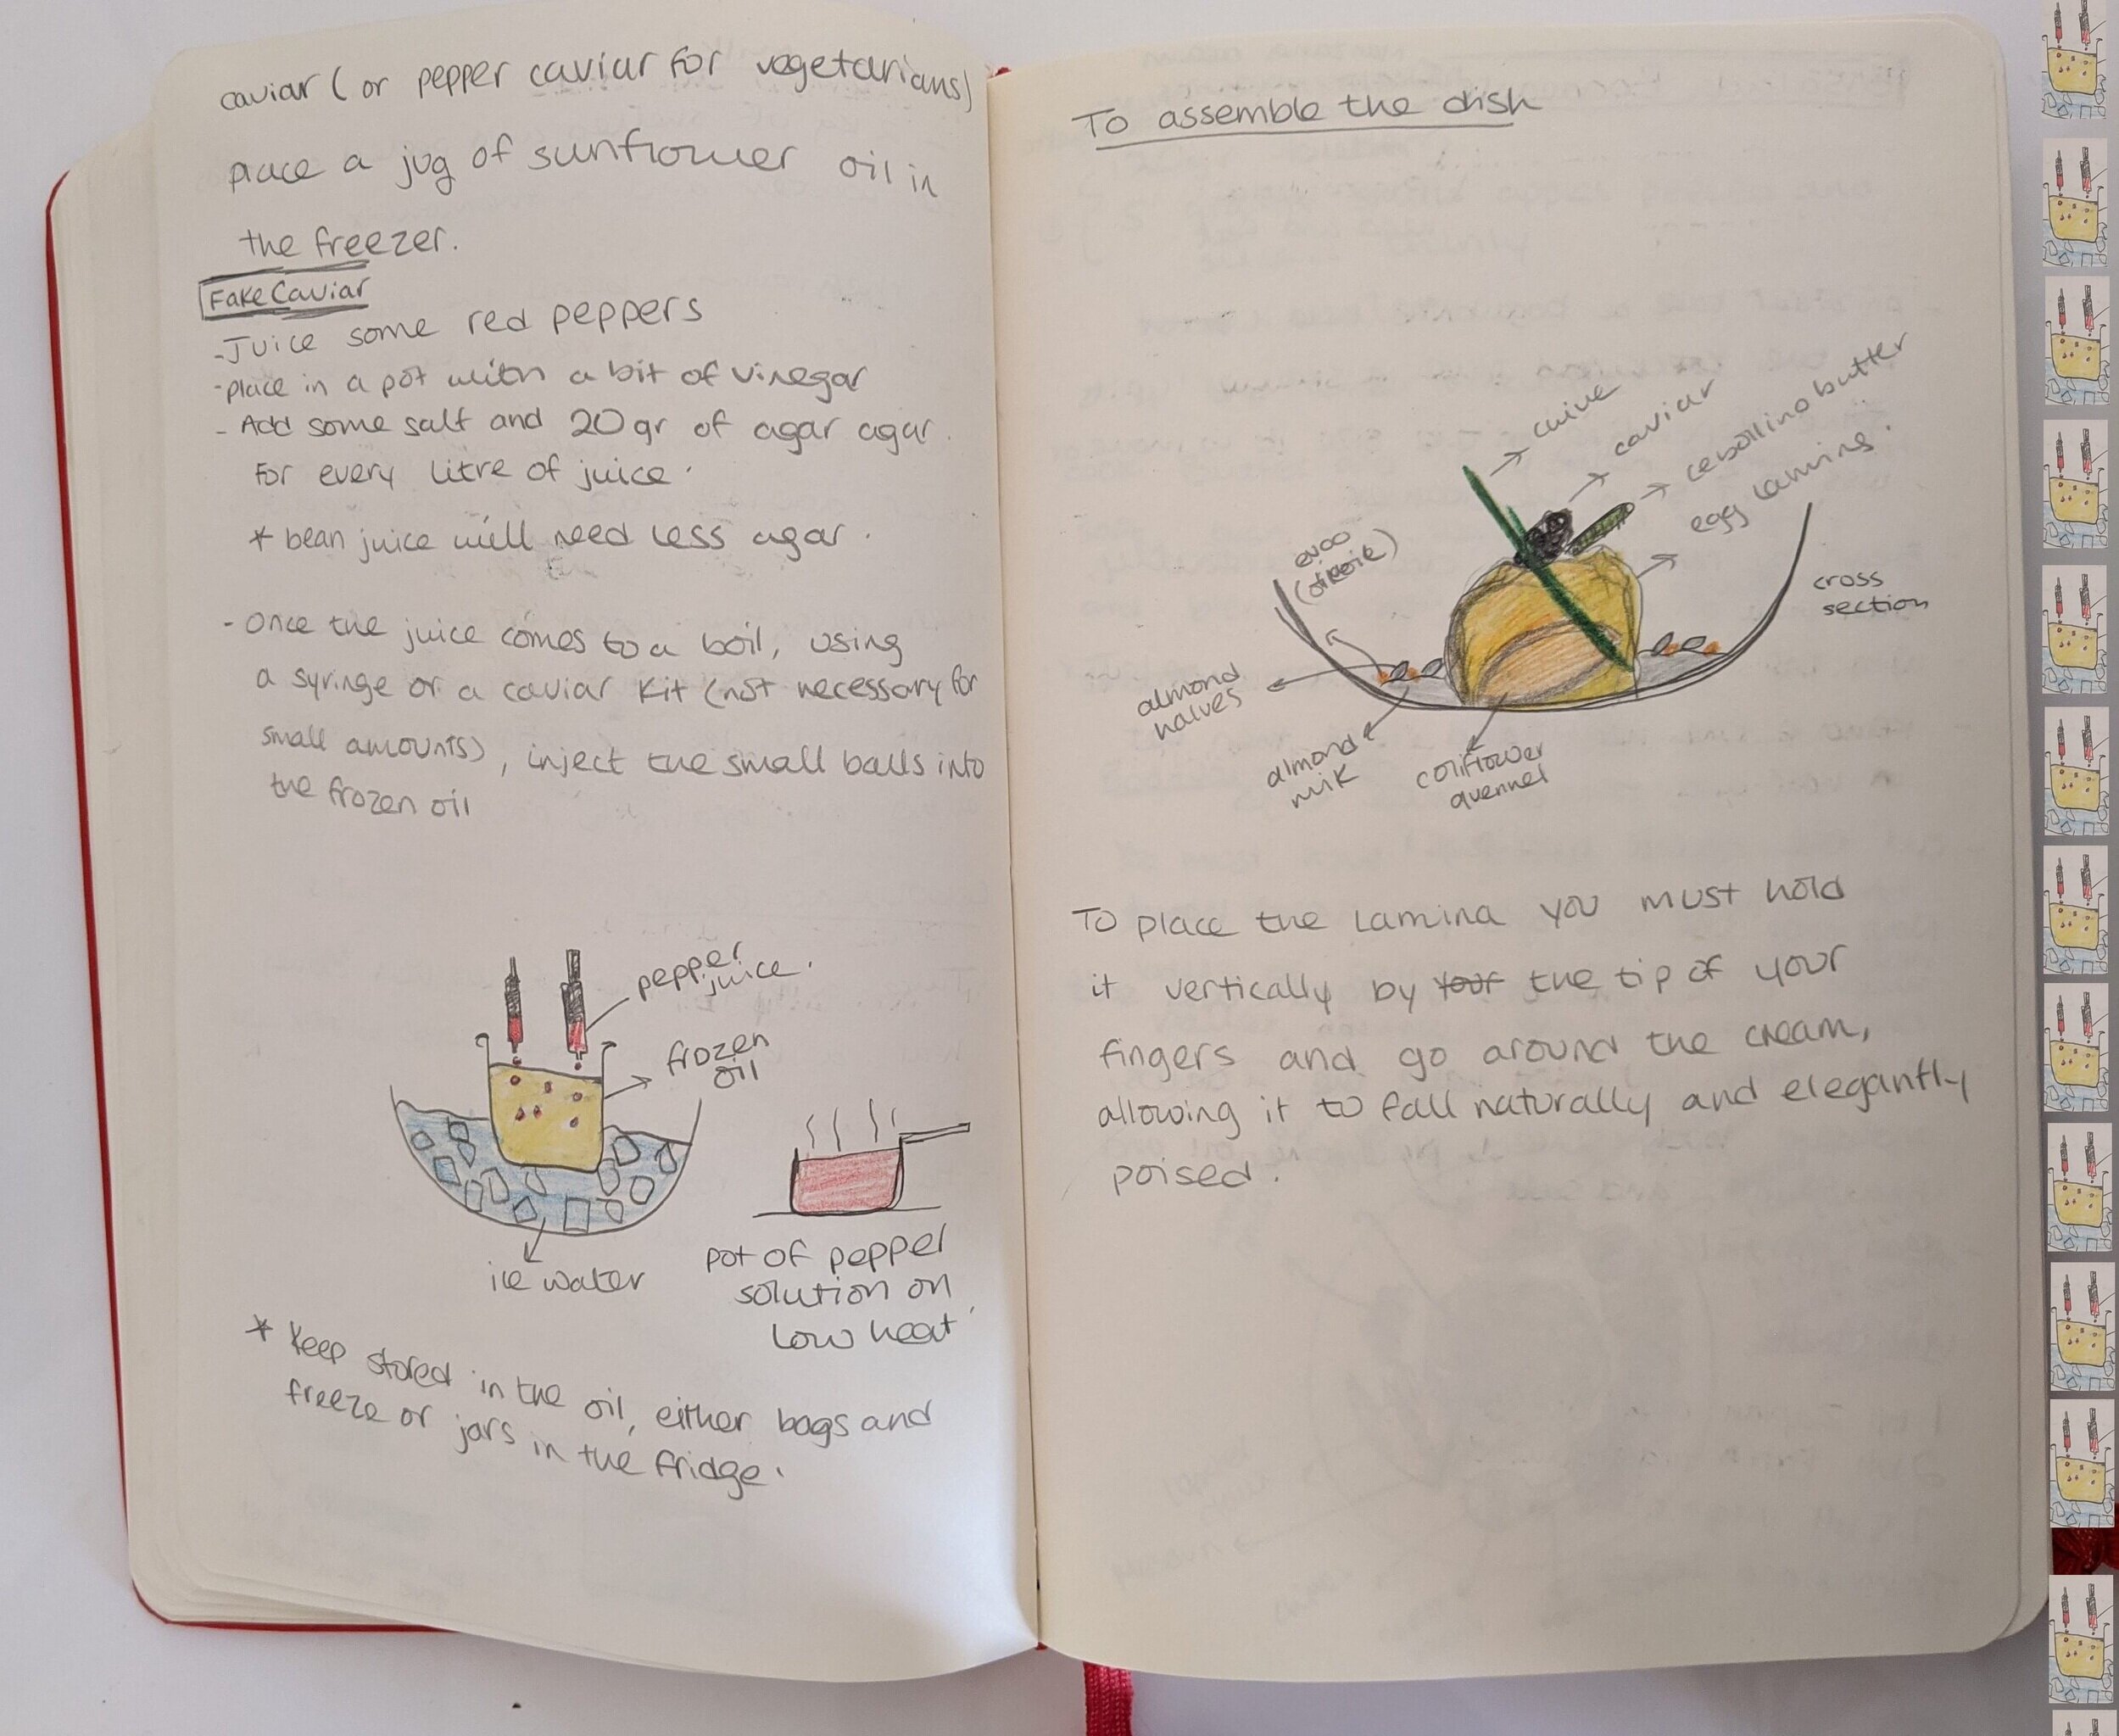 caviar (or pepper caviar for vegetarians)
place a jug of sunflower oil in
the freezer.
Fake Caviar
-Juice some red peppers
-place in a pot with a bit of vinegar
- Add some salt and 20gr of agar agar
for every litre of juice.
* bean juice will need less agar.
- Once the juice comes to a boil, using
a syringe or a caviar kit (not necessary for
small amounts), inject the small balls into
the frozen oil
pepper
juice.
frozen
oil
ice water
pot of pepper
solution on
low heat
* Keep stored in the oil, either bags and
freeze or jars in the fridge.
To assemble the dish
chive
caviar
cebollino butter
egg lamina.
evoo
cross
section
almond
halves
almond
milk
coliflower
quennel
To place the lamina you must hold
it vertically by your the tip of your
fingers and go around the cream,
allowing it to fall naturally and elegantly
poised.